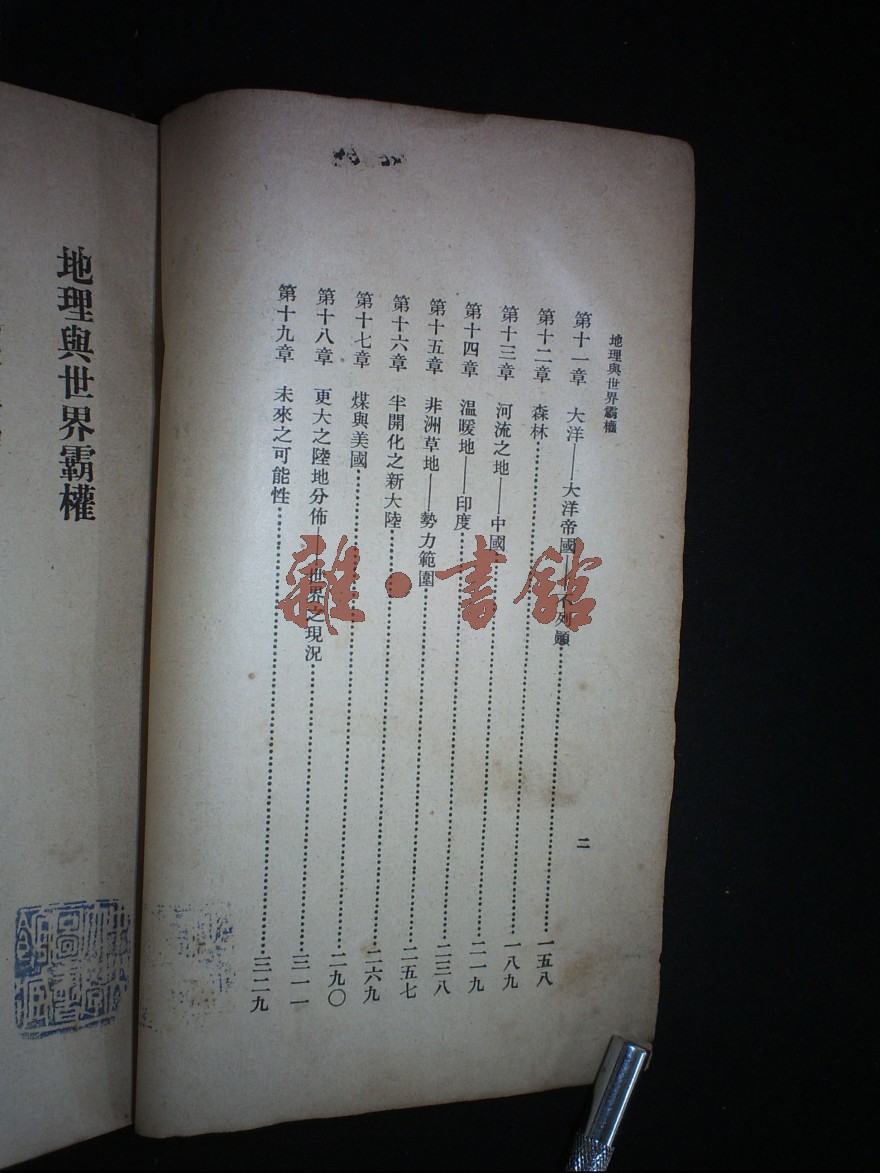 地理與世界霸權 二
第十一章 大洋——大洋帝國——不列顚……一五八
第十二章 森林……一八九
第十三章 河流之地——中國……二一九
第十四章 溫暖地——印度……二三八
第十五章 非洲草地——勢力範圍……二五七
第十六章 半開化之新大陸……二六九
第十七章 煤與美國……二九〇
第十八章 更大之陸地分佈——世界之現況……三一一
第十九章 未來之可能性……三二九
地理與世界霸權
雜·書館